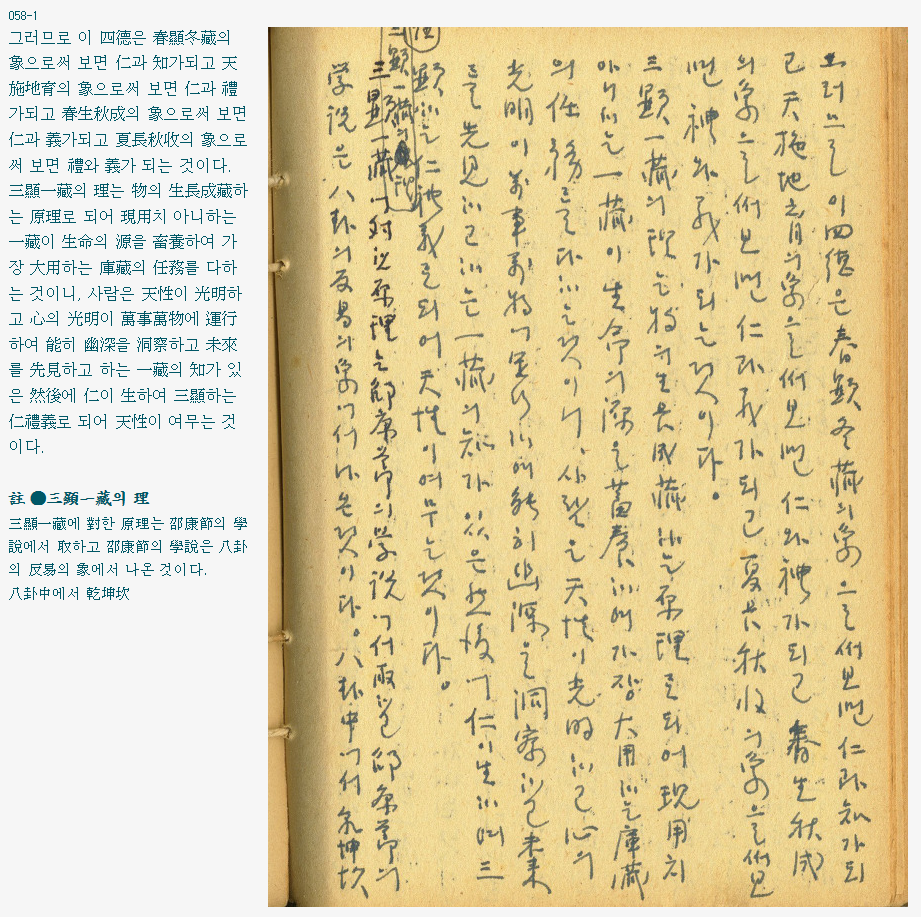 058-1
그러므로 이 四德은 春顯冬藏의
象으로써 보면 仁과 知가되고 天
施地育의 象으로써 보면 仁과 禮
가되고 春生秋成의 象으로써 보면
仁과 義가되고 夏長秋收의 象으로
써 보면 禮와 義가 되는 것이다.
三顯一藏의 理는 物의 生長成藏하
는 原理로 되어 現用치 아니하는
一藏이 生命의 源을 畜養하여 가
장 大用하는 庫藏의 任務를 다하
는 것이니, 사람은 天性이 光明하
고 心의 光明이 萬事萬物에 運行
하여 能히 幽深을 洞察하고 未來
를 先見하고 하는 一藏의 知가 있
은 然後에 仁이 生하여 三顯하는
仁禮義로 되어 天性이 여무는 것
이다.
註 ●三顯一藏의 理
三顯一藏에 對한 原理는 邵康節의 學
說에서 取하고 邵康節의 學說은 八卦
의 反易의 象에서 나온 것이다.
八卦中에서 乾坤坎
그러므로 이四德은 春顯冬藏의象으로써보면 仁과知가되
고 天施地育의象으로써보면 仁과禮가되고 春生秋成
의象으로써보면 仁과義가되고 夏長秋收의象으로써보
면 禮와義가되는것이다。
三顯一藏의理는物의生長成藏하는原理로되어現用치
아니하는一藏이生命의源을蓄養하여가장大用하는庫藏
의任務를다하는것이니、사람은天性이光明하고心의
光明이萬事萬物에運行하여能히幽深을洞察하고未來
를先見하고하는一藏의知가있은然後에仁이生하여三
顯하는仁禮義로되어天性이여무는것이다。
註 三顯一藏의理
三顯一藏에對한原理는邵康節의学説에서取하고邵康節의
学説은八卦의反易의象에서나온것이다。八卦中에서乾坤坎